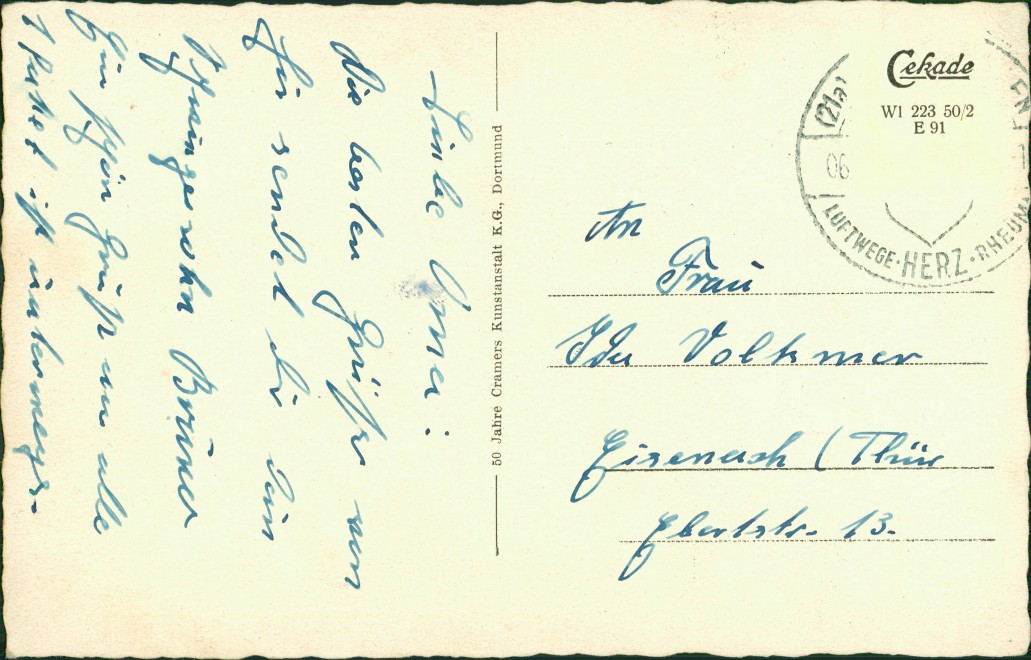 Liebe Oma:
Die besten Grüße von
hir sendet dir dein
Werner
Ein schön Gruß an alle
ist unterwegs.
50 Jahre Cramers Kunstanstalt K.G., Dortmund
Cekade
Wl 223 50/2
E 91
(21a)
06
LUFTWEGE · HERZ · RHEUM
An
Frau
Ida Volkmer
Eisenach (Thür
Ebertstr. 13.